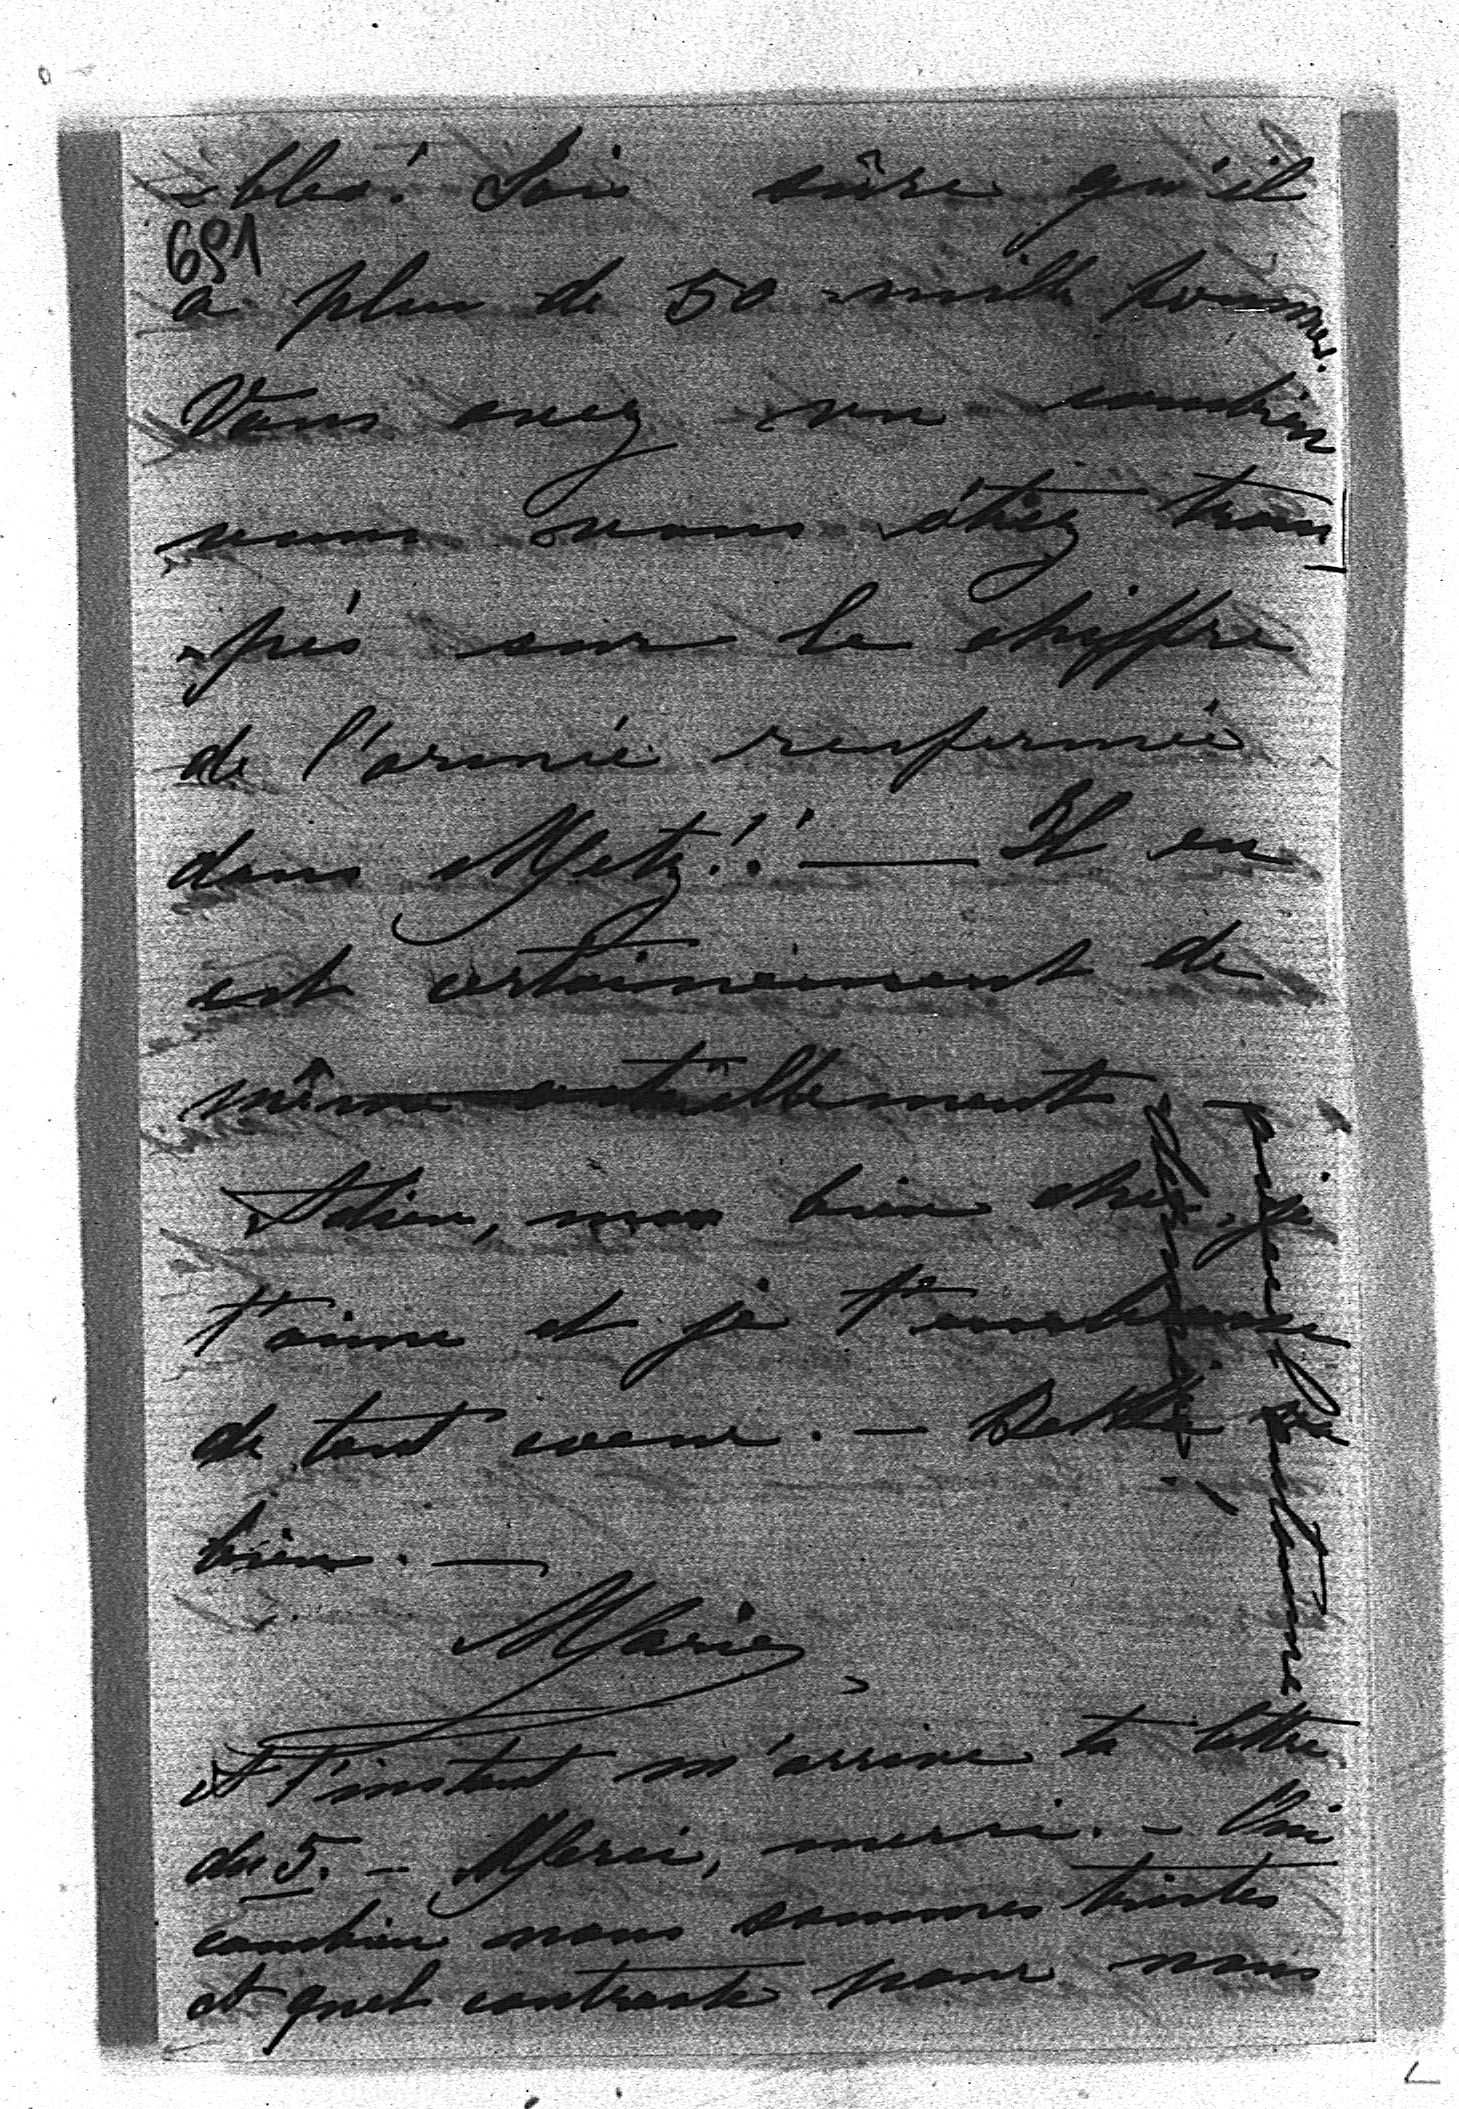 -bles! Sois sûre qu'il
691
a plus de 50 mille hommes.
Vous avez vu combien
nous nous étiez trom
-pés sur le chiffre
de l'armée renfermée
dans Metz!! — Il en
est certainement de
même actuellement —
Adieu, mon bien cher, je
t'aime et je t'embrasse
de tout coeur. — Bertha va
bien. —
Marie
A l'instant m'arrive ta lettre
du 5. — Merci, merci. — Oui
combien nous sommes tristes
et quel contraste pour nous